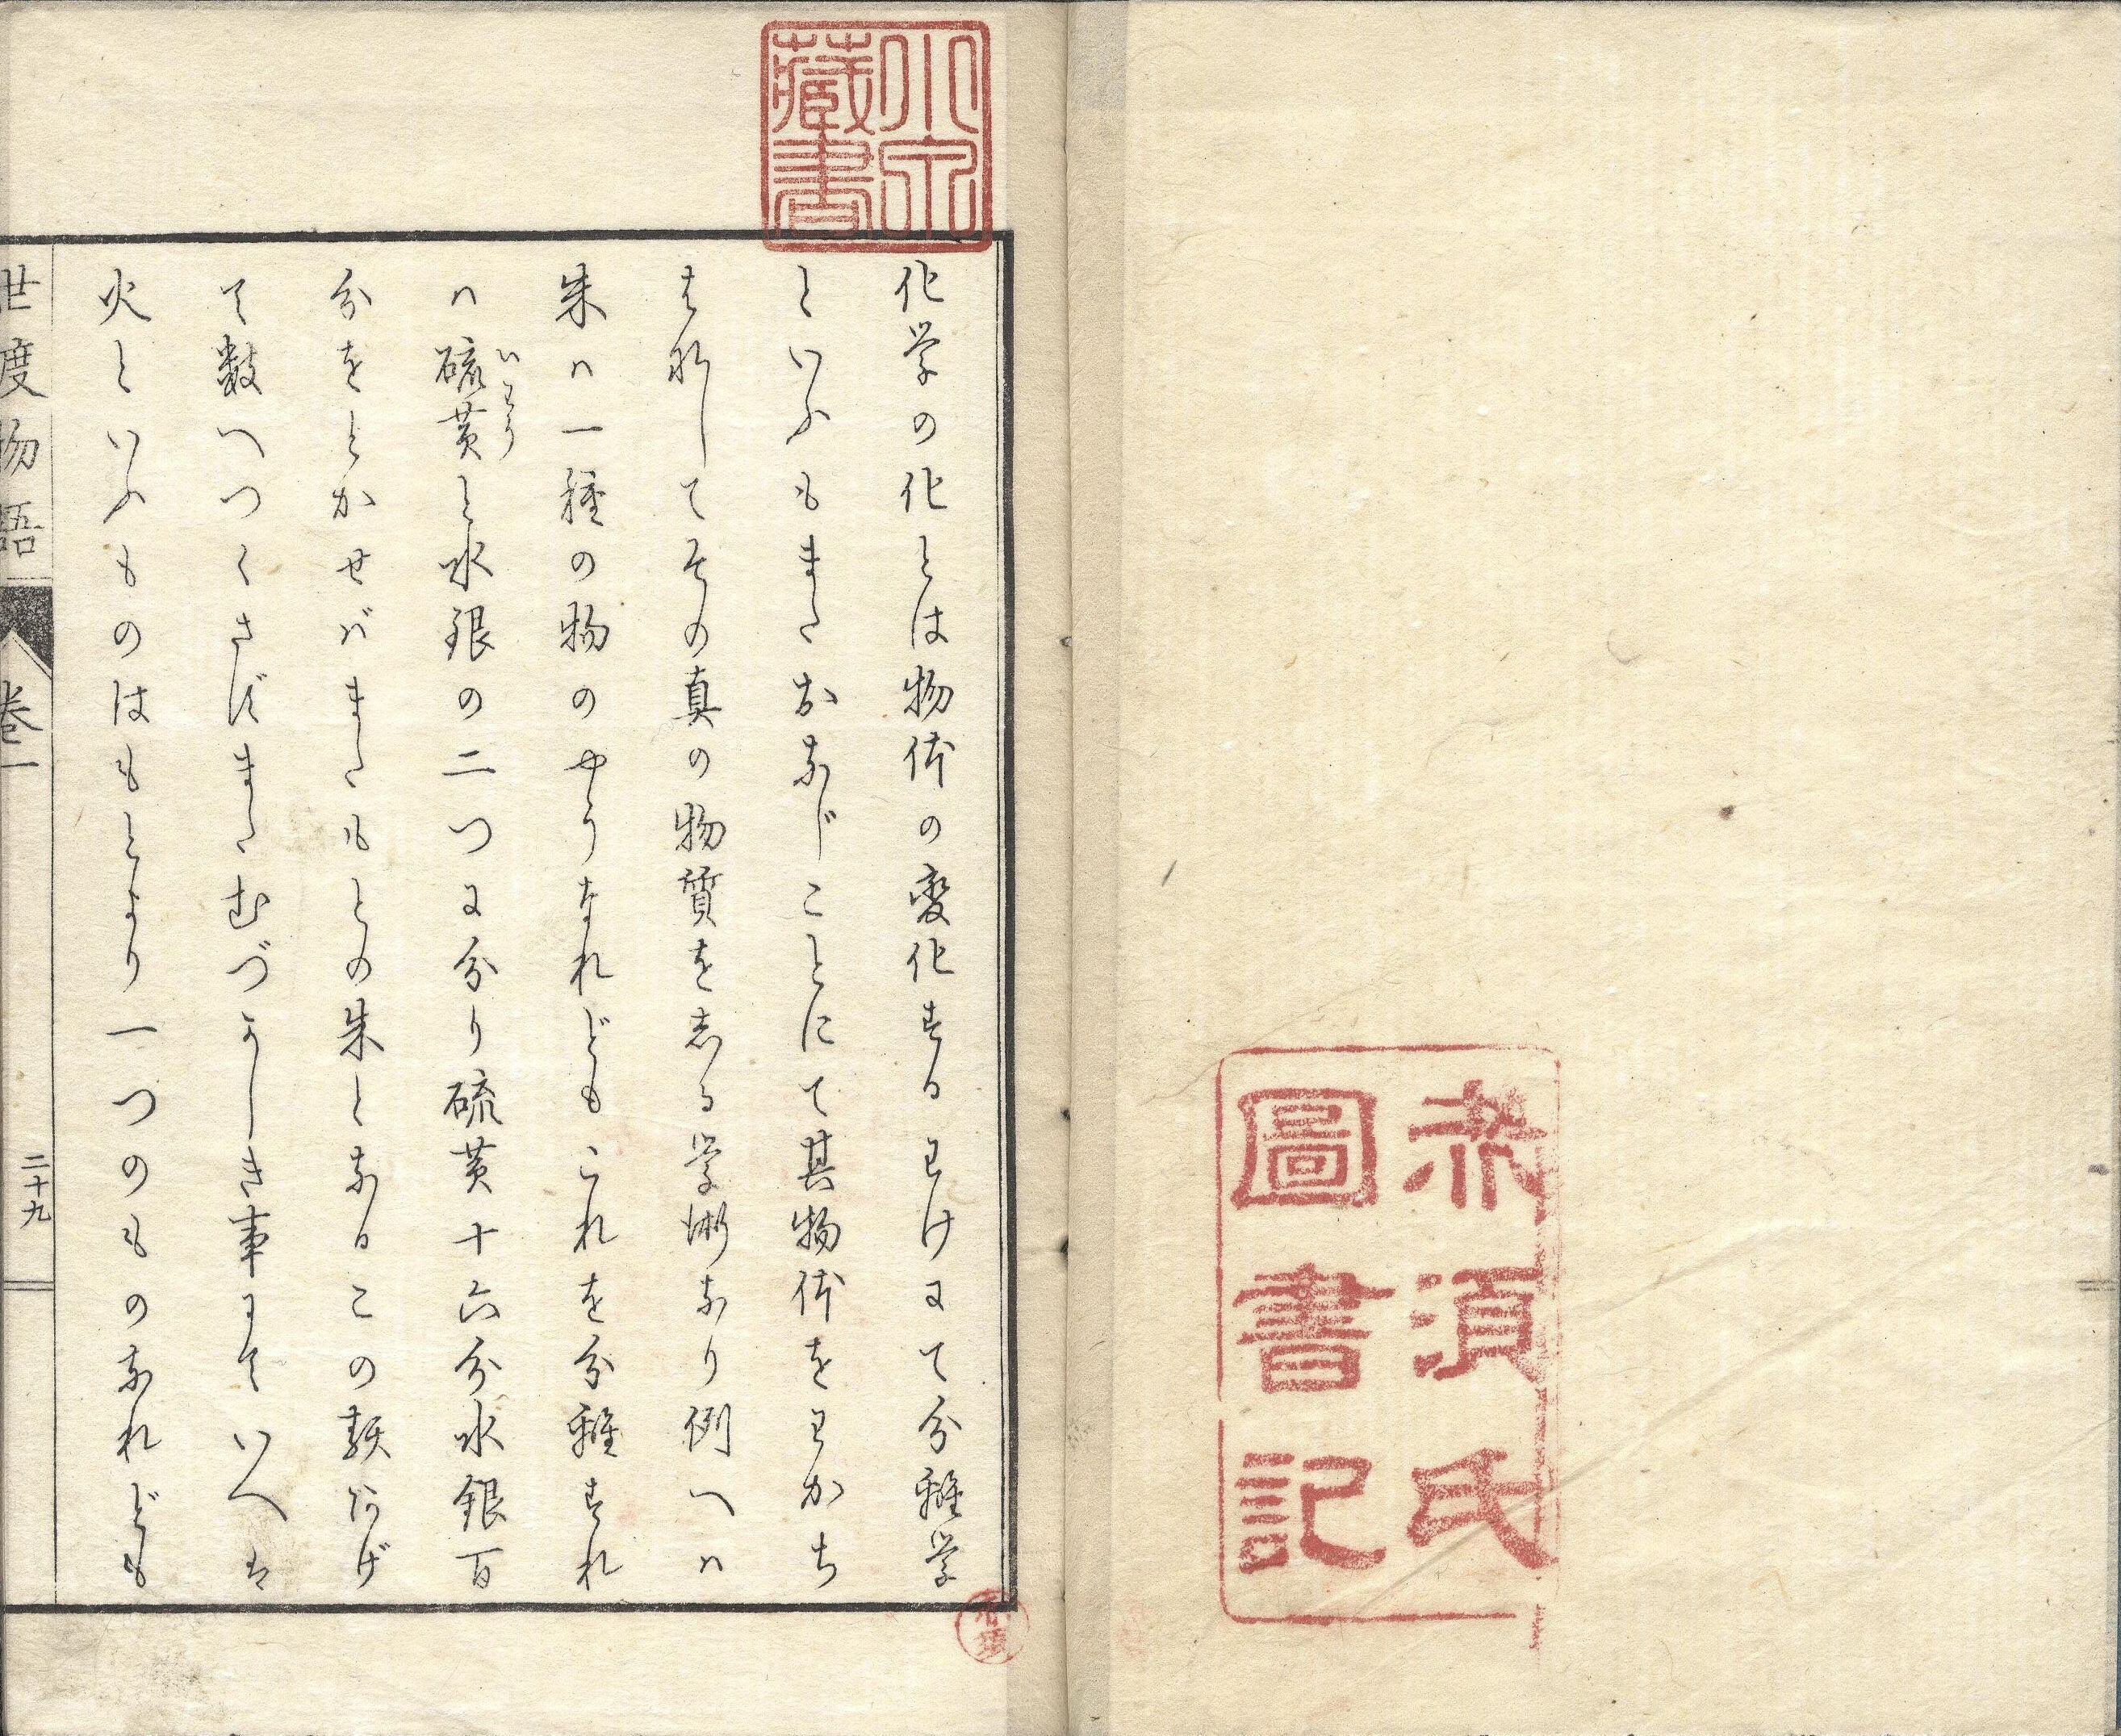 赤須氏
圖書記
藏書
化学の化とは物体の変化するわけにて分離学
といふもまたおなじことにて其物体をわかち
はなしてその真の物質をしる学術なり例へハ
朱ハ一種の物のやうなれどもこれを分離すれ
いわう
ハ硫黄と水銀の二つに分り硫黄十六分水銀百
分をとかせバまたもとの朱となるこの類あげ
て数へつくさずまたむづかしき事にていへは
火といふものはもとより一つのものなれども
世度物語 卷一 二十九